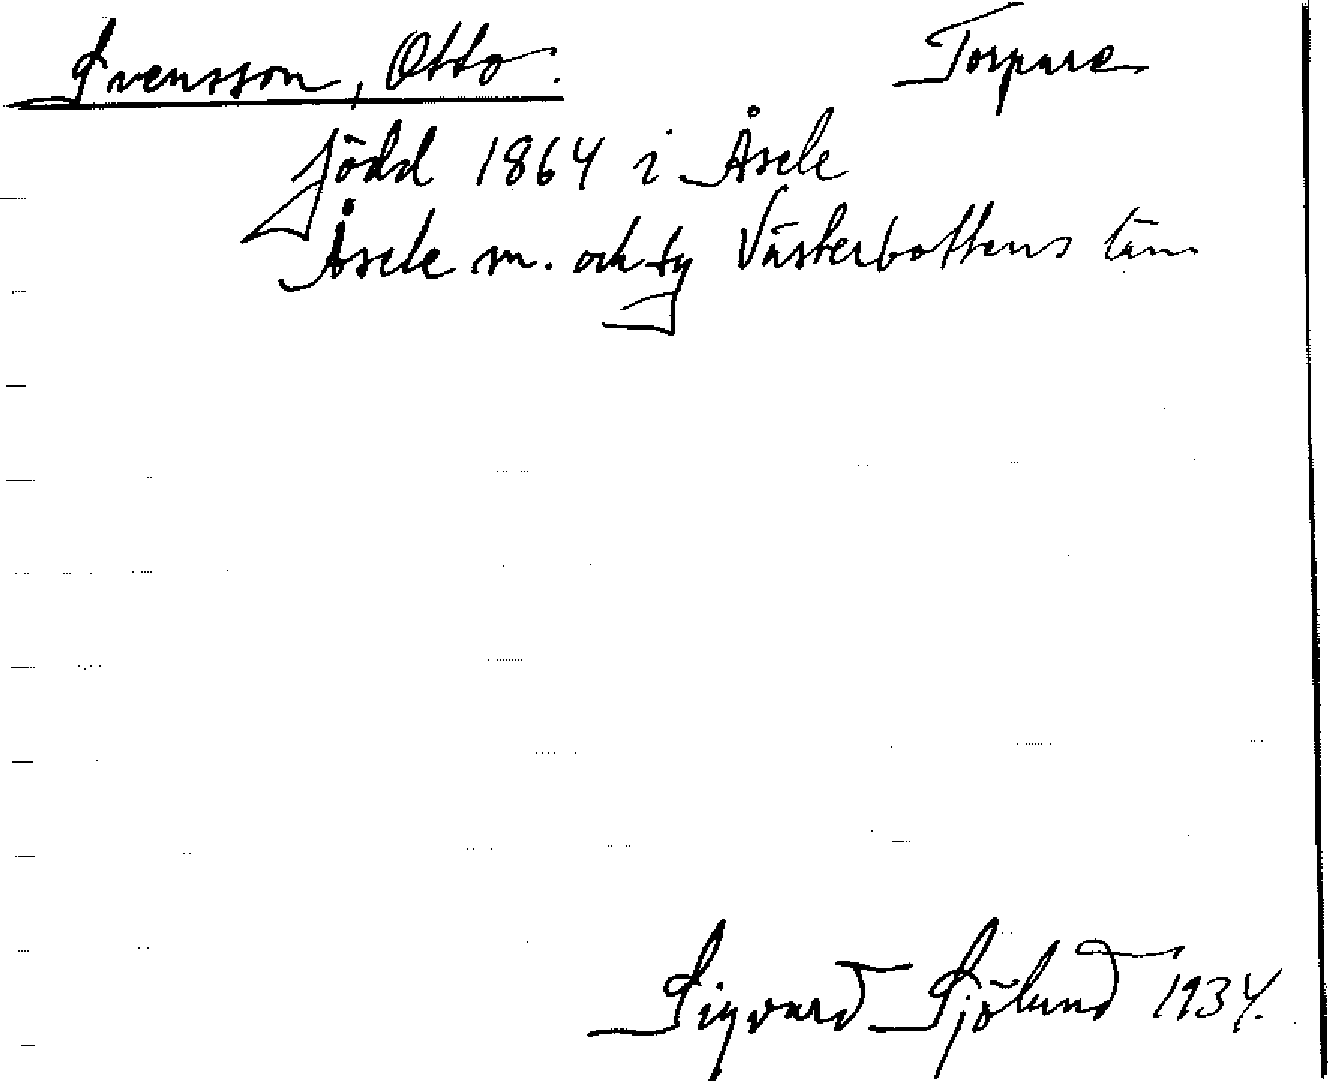 Svensson, Otto. Torpare
född 1864 i Åsele
Åsele sn. och by Västerbottens län
Sigvard Sjölund 1934.